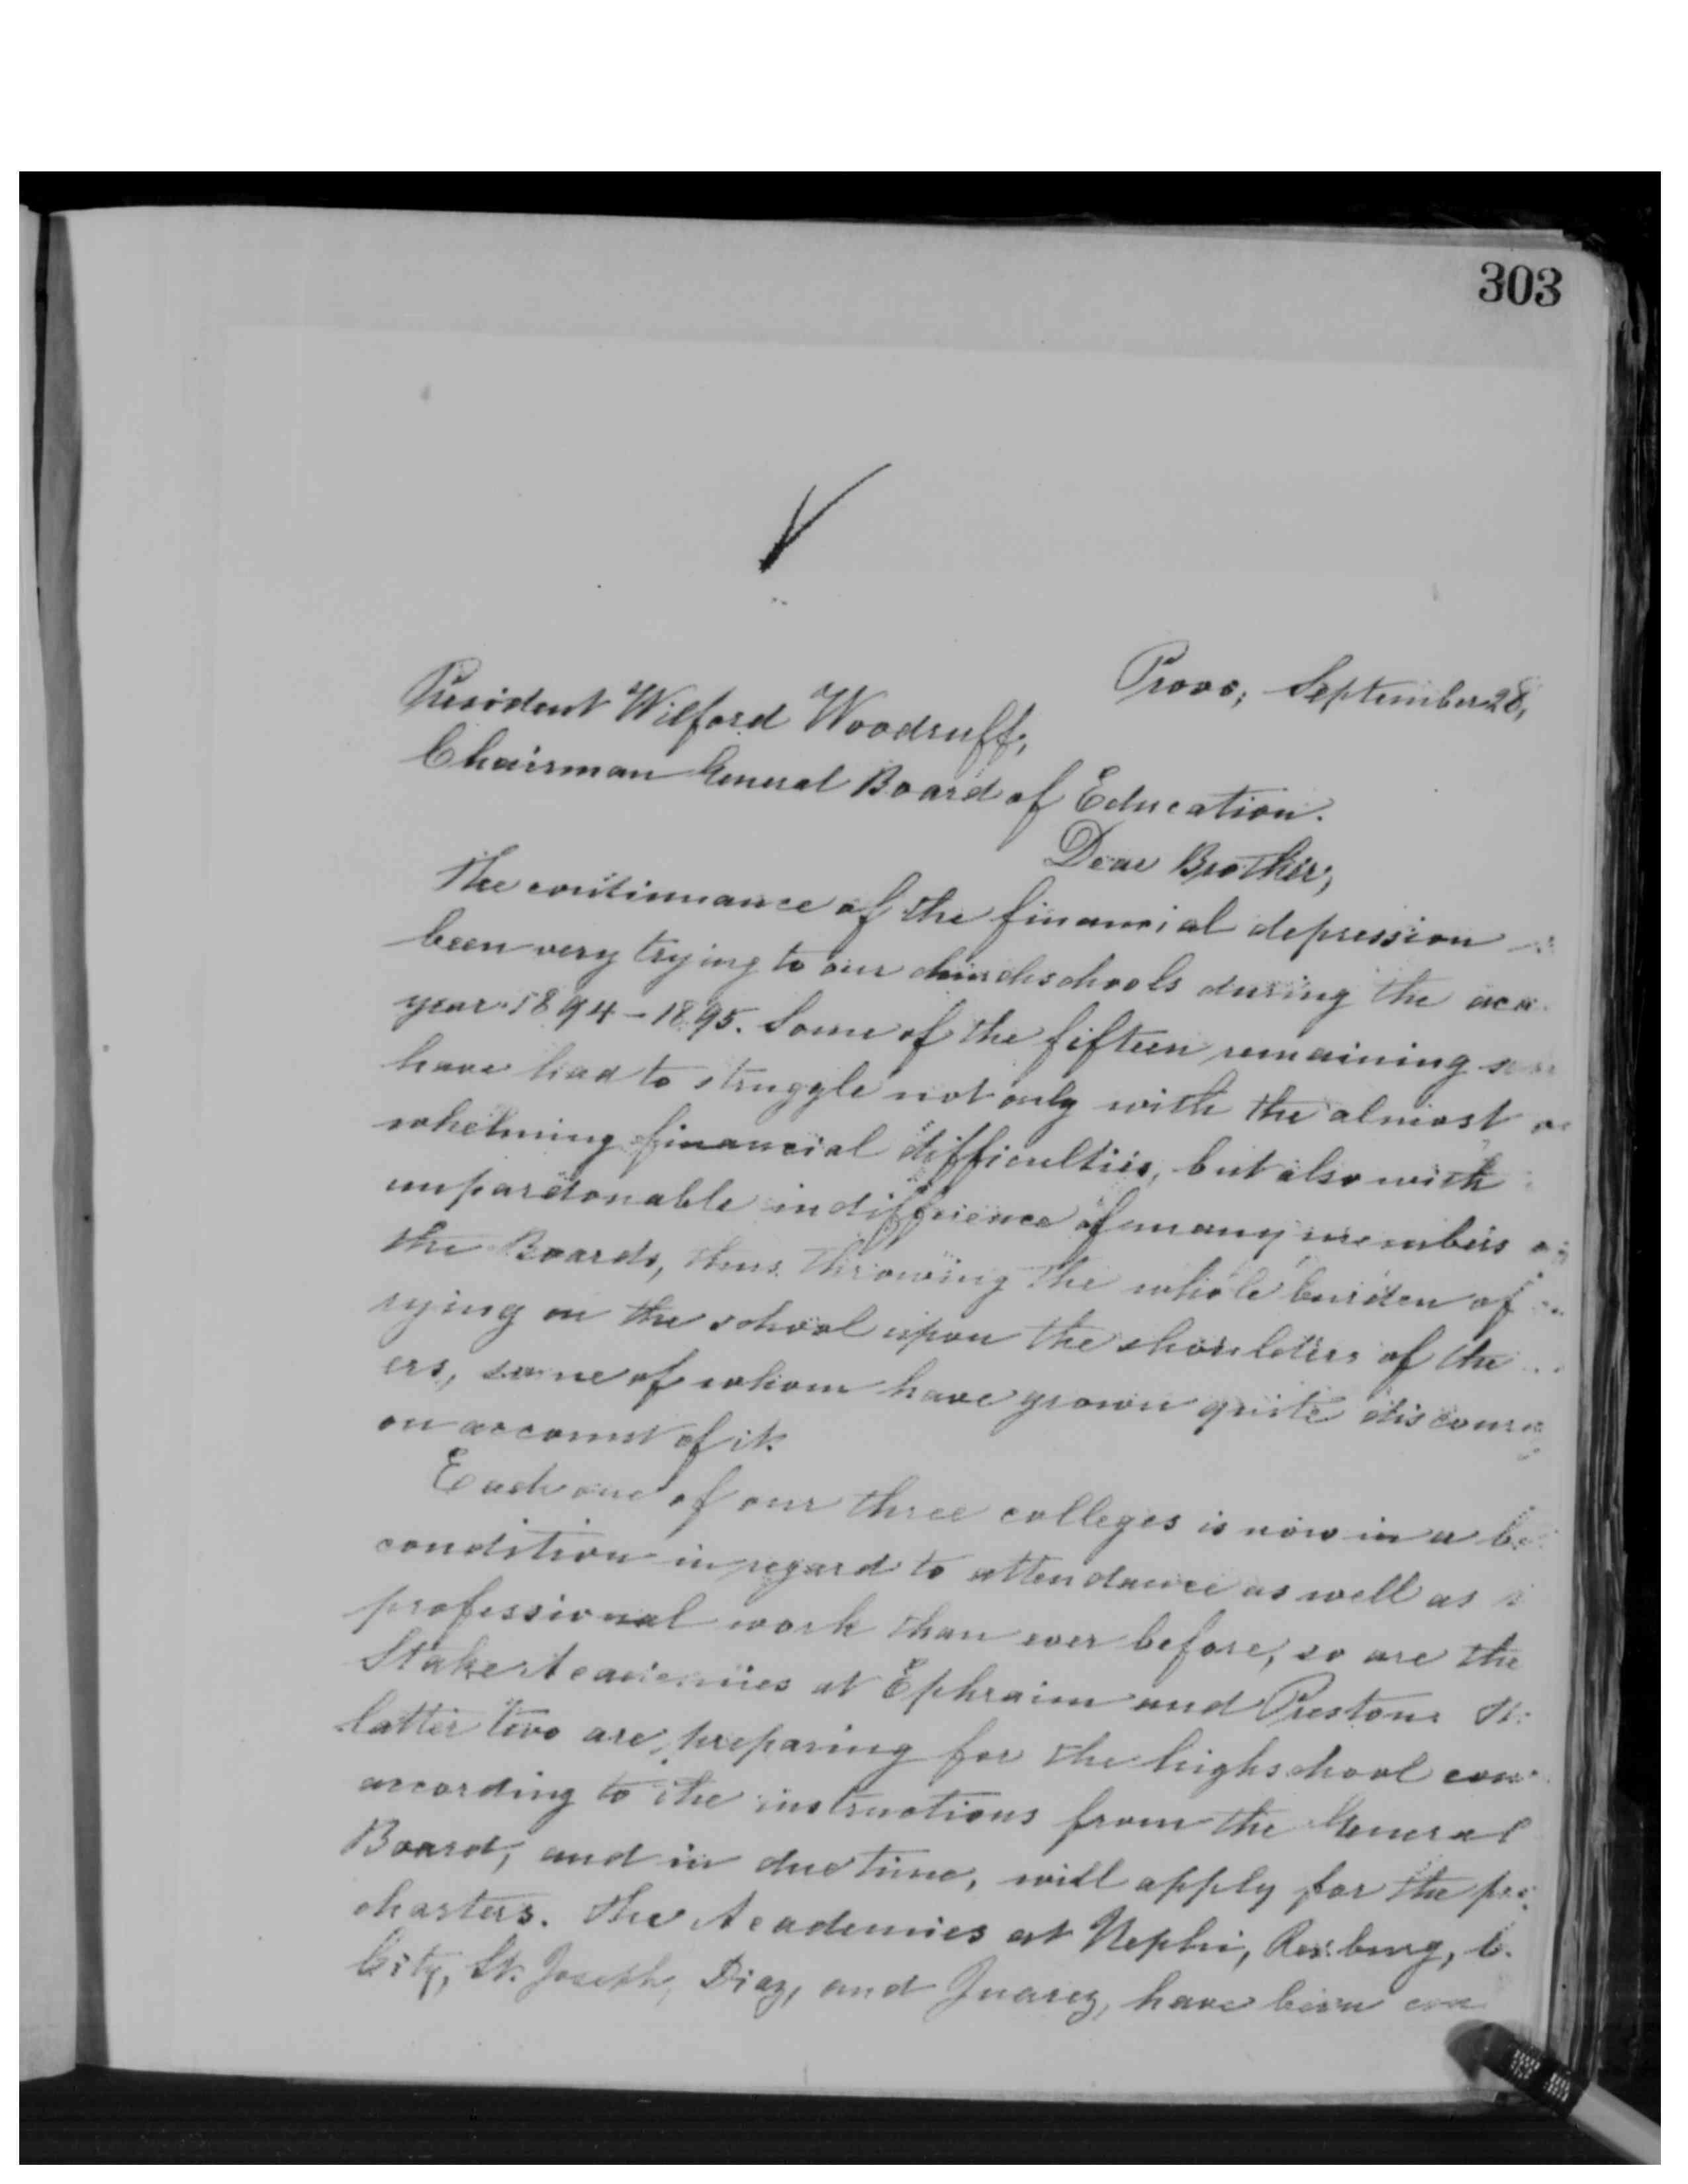 303
Provo, September 28,
President Wilford Woodruff,
Chairman General Board of Education.
Dear Brother,
The continuance of the financial depression
been very trying to our churchschools during the aca
year 1894-1895. Some of the fifteen remaining
have had to struggle not only with the almost
whelming financial difficulties, but also with
unpardonable indifference of many members
the Boards, thus throwing the whole burden of
rying on the school upon the shoulders of the
ers, some of whom have grown quite discour
on account of it.
Each one of our three colleges is now in a be
condition in regard to attendance as well as
professional work than ever before, so are the
Stake Academies at Ephraim and Preston.
latter two are preparing for the highschool
according to the instructions from the General
Board, and in due time, will apply for the
charters. The Academies at Nephi, Rexburg,
City, St. Joseph, Diaz, and Juarez, have been